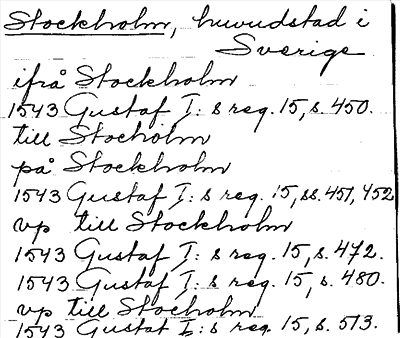 Stockholm, huvudstad i
Sverige
ifrå Stockholm
1543 Gustaf I: s reg. 15, s. 450.
till Stocholm
på Stockholm
1543 Gustaf I: s reg. 15, ss. 451, 452
vp till Stockholm
1543 Gustaf I: s reg. 15, s. 472.
1543 Gustaf I: s reg. 15, s. 480.
vp till Stocholm
1543 Gustaf I: s reg. 15, s. 513.